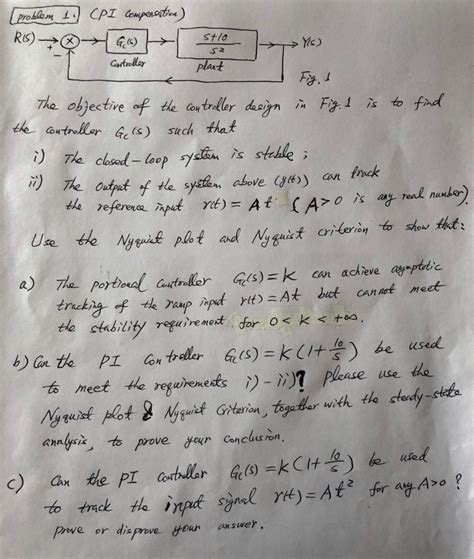 problem 1. (PI Compensation)
R(s) + - Gc(s) s+10 / s² Y(s)
Controller plant Fig. 1
The objective of the controller design in Fig. 1 is to find
the controller Gc(s) such that
i) The closed-loop system is stable ;
ii) The output of the system above (y(t)) can track
the reference input r(t) = At (A>0 is any real number).
Use the Nyquist plot and Nyquist criterion to show that:
a) The portional controller Gc(s) = K can achieve asymptotic
tracking of the ramp input r(t) = At but cannot meet
the stability requirement for 0 < K < +∞.
b) Can the PI controller Gc(s) = K(1+10/s) be used
to meet the requirements i) - ii)? Please use the
Nyquist plot & Nyquist Criterion, together with the steady-state
analysis, to prove your conclusion.
c) Can the PI controller Gc(s) = K(1+10/s) be used
to track the input signal r(t) = At² for any A>0 ?
prove or disprove your answer.